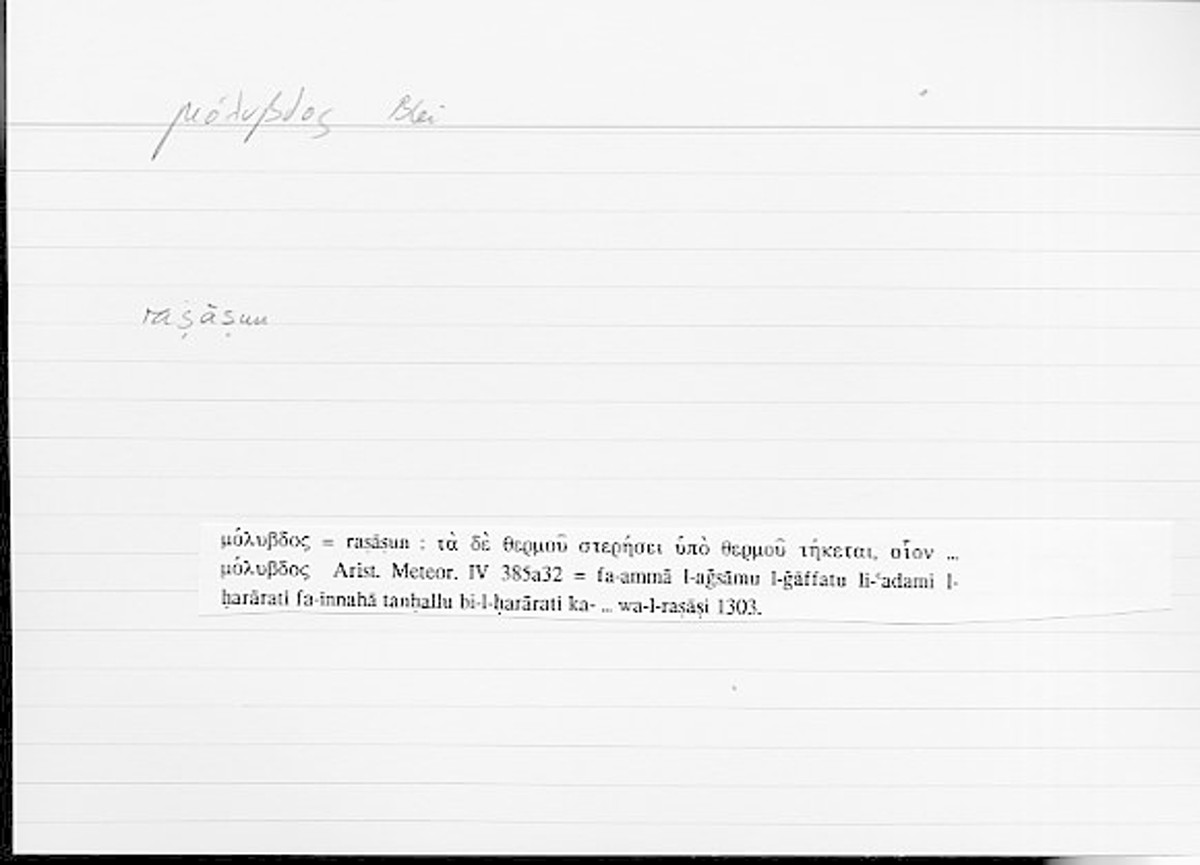 μόλυβδος Blei
raṣāṣun
μόλυβδος = rasāsun : τὰ δὲ θερμοῦ στερήσει ὑπὸ θερμοῦ τήκεται, οἷον ...
μόλυβδος Arist. Meteor. IV 385a32 = fa-ammā l-aǧsāmu l-ǧāffatu li-ʿadami l-
ḥarārati fa-innahā tanḥallu bi-l-ḥarārati ka- ... wa-l-raṣāṣi 1303.